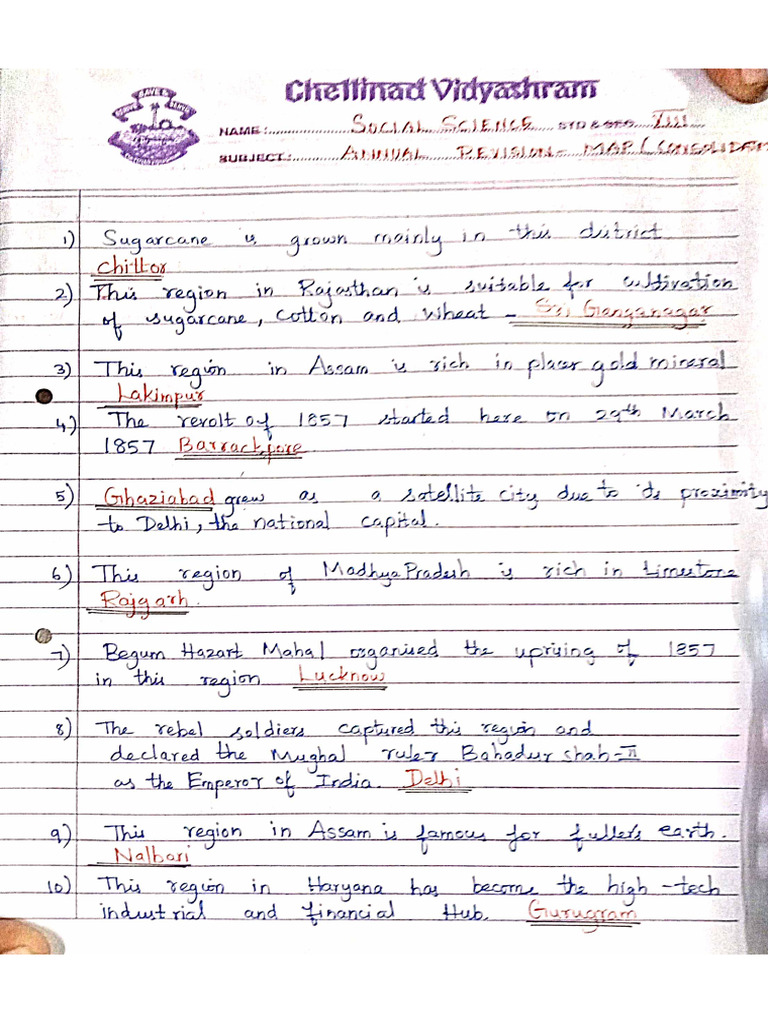 Chettinad Vidyashram
NAME: SOCIAL SCIENCE STD & SEC. VIII
SUBJECT: ANNUAL REVISION - MAP (CONSOLIDATE
1) Sugarcane is grown mainly in this district
Chittor
2) This region in Rajasthan is suitable for cultivation
of sugarcane, cotton and wheat - Sri Ganganagar
3) This region in Assam is rich in placer gold mineral
Lakimpur
4) The revolt of 1857 started here on 29th March
1857 Barrackpore
5) Ghaziabad grew as a satellite city due to its proximity
to Delhi, the national capital.
6) This region of Madhya Pradesh is rich in Limestone
Rajgarh.
7) Begum Hazart Mahal organised the uprising of 1857
in this region Lucknow
8) The rebel soldiers captured this region and
declared the Mughal ruler Bahadur Shah-II
as the Emperor of India. Delhi
9) This region in Assam is famous for fuller's earth.
Nalbari
10) This region in Haryana has become the high-tech
industrial and financial Hub. Gurugram